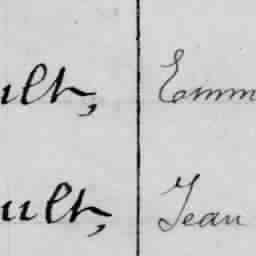 ult, Emm
ult, Jean